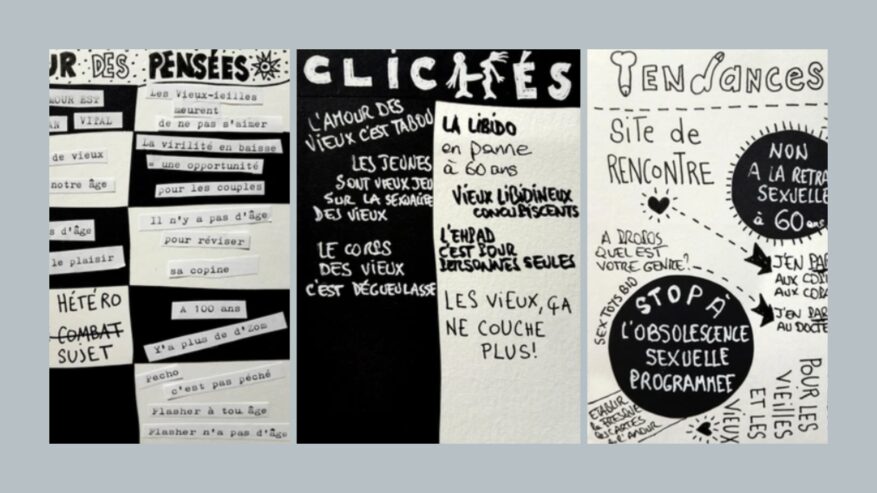 UR DES PENSÉES
MOUR EST
AN VITAL
de vieux
notre âge
s d'âge
le plaisir
HÉTÉRO
COMBAT
SUJET
Les Vieux-ieilles
meurent
de ne pas s'aimer
La virilité en baisse
= une opportunité
pour les couples
Il n'y a pas d'âge
pour réviser
sa copine
A 100 ans
Y'a plus de d'Zom
Pacho
c'est pas péché
Flasher à tou âge
Flasher n'a pas d'âge
CLICHÉS
L'AMOUR DES
VIEUX C'EST TABOU
LES JEUNES
SONT VIEUX JEU
SUR LA SEXUALITÉ
DES VIEUX
LE CORPS
DES VIEUX
C'EST DÉGUEULASSE
LA LIBIDO
en panne
à 60 ans
VIEUX LIBIDINEUX
CONCUPISCENTS
L'EHPAD
C'EST POUR
PERSONNES SEULES
LES VIEUX, ÇA
NE COUCHE
PLUS!
TENDANCES
SITE de
RENCONTRE
NON
A LA RETRA
SEXUELLE
à 60 ans
A PROPOS
QUEL EST
VOTRE GENRE?
J'EN PAR
AUX COP
AUX COP
J'EN PAR
AU DOCTE
SEX TOYS BIO
STOP À
L'OBSOLESCENCE
SEXUELLE
PROGRAMMÉE
ETABLIR
la FRESQUE
les CARTES
de L'AMOUR
POUR LES
VIEILLES
ET LES
VIEUX